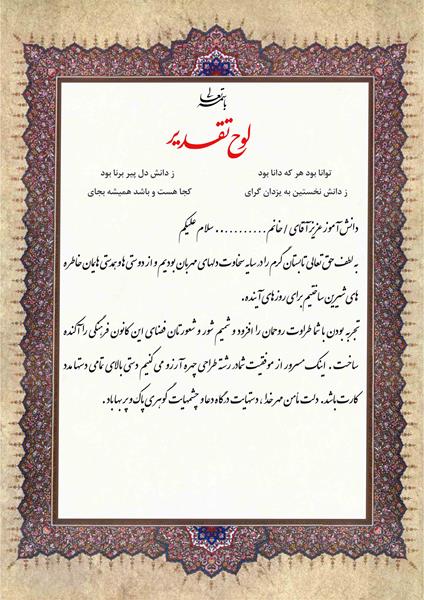 باسمه تعالی
لوح تقدیر
توانا بود هر که دانا بود ز دانش دل پیر برنا بود
ز دانش نخستین به یزدان گرای کجا هست و باشد همیشه بجای
دانش آموز عزیز آقای / خانم .......... سلام علیکم
به لطف حق تعالی تابستان گرم را در سایه سخاوت دلهای مهربان بودیم و از دوستی ها و همدمی هایمان خاطره
های شیرین ساختیم برای روزهای آینده.
تجربه بودن با شما طراوت روحمان را افزود و شمیم شور و شعورتان فضای این کانون فرهنگی را آکنده
ساخت. اینک مسرور از موفقیت شما در رشته طراحی چهره آرزو می کنیم دستی بالای تمامی دستها مدد
کارت باشد. دلت مامن مهر خدا، دستهایت درگاه دعا و چشمهایت گوهری پاک و پر بها باد.